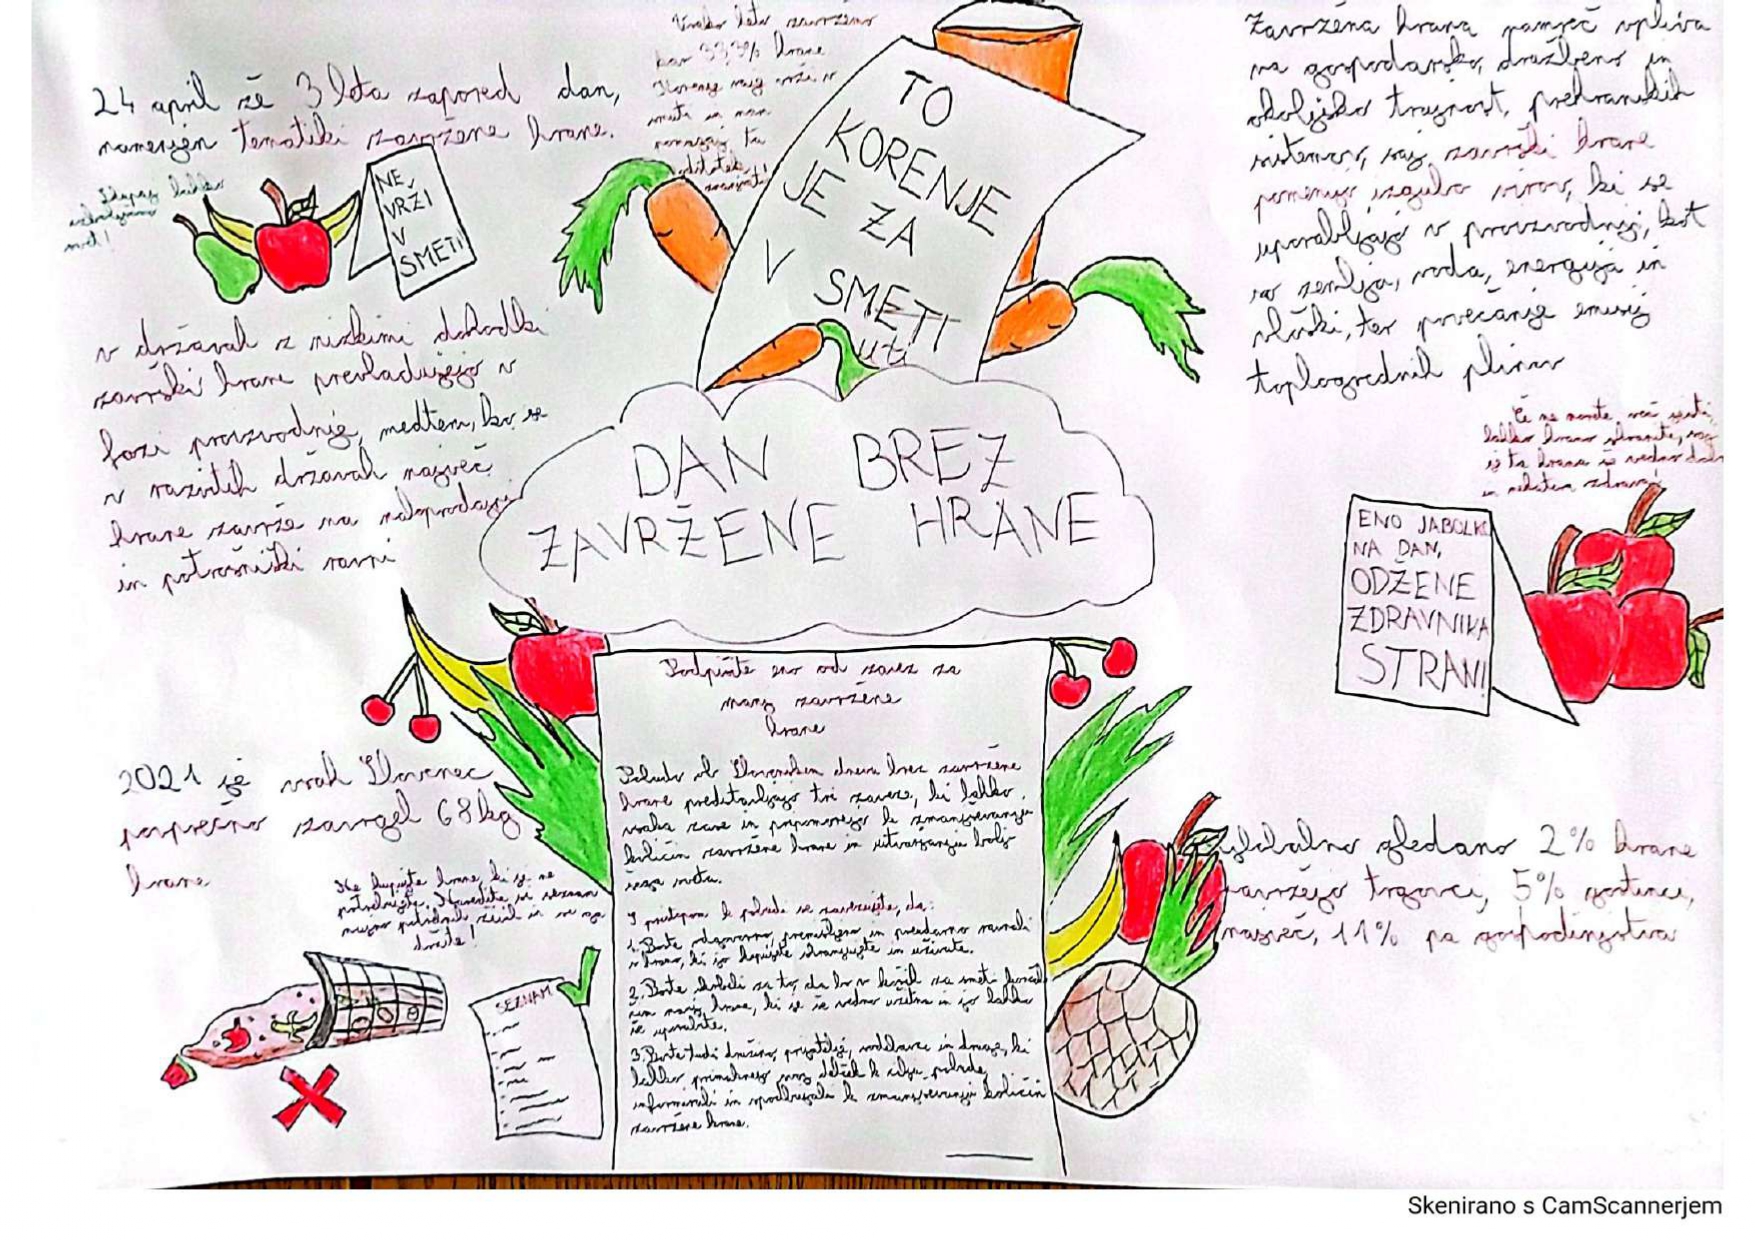 24 april že 3 leta zapored dan,
namenjen tematiki zavržene hrane.
Skupaj lahko
svet!
NE
VRŽI
V
SMETI!
Vsako leto zavržemo
kar 33,3% hrane
TO
KORENJE
JE ZA
V
SMETI
uti
Zavržena hrana namreč vpliva
na gospodarsko, družbeno in
okoljsko trajnost, prehranskih
sistemov, saj zavržki hrane
pomenijo izgubo virov, ki se
uporabljajo v proizvodnji, kot
so zemlja, voda, energija in
ter povečanje emisij
toplogrednih plinov
v državah z nizkimi dohodki
zavržki hrane prevladujejo v
fazi proizvodnje, medtem, ko se
v razvitih državah največ
hrane zavrže na maloprodajni
in potrošniški ravni
DAN BREZ
ZAVRŽENE HRANE
Če ne morete več jesti,
lahko hrano shranite, saj
je ta hrana še vedno dobra
in nekatera zdrava!
ENO JABOLKO
NA DAN,
ODŽENE
ZDRAVNIKA
STRAN!
Podpišite eno od zavez za
manj zavržene
hrane
Pobuda ob Slovenskem dnevu brez zavržene
hrane predstavljajo tri zaveze, ki lahko
vsaka zase in pripomorejo k zmanjševanju
količin zavržene hrane in ustvarjanju boljšega sveta.
S pristopom k pobudi se zavezujete, da:
1. Boste odgovorno, premišljeno in preudarno ravnali
s hrano, ki jo kupujete shranjujete in uživate.
2. Boste skrbeli za to, da bo v koših za smeti končalo
čim manj hrane, ki je še vedno užitna in jo lahko
še uporabite.
3. Boste tudi družino, prijatelje, sodelavce in druge, ki
lahko prispevajo svoj delček k cilju pobude,
informirali in spodbujali k zmanjševanju količin
zavržene hrane.
2021 je vsak Slovenec
povprečno zavrgel 68kg
hrane
Ne kupujte hrane, ki je ne
potrebujete. Naredite si seznam
nujno potrebnih stvari in se ga
držite!
SEZNAM
globalno gledano 2% hrane
zavržejo trgovci, 5% gostinci,
največ, 11% pa gospodinjstva
Skenirano s CamScannerjem